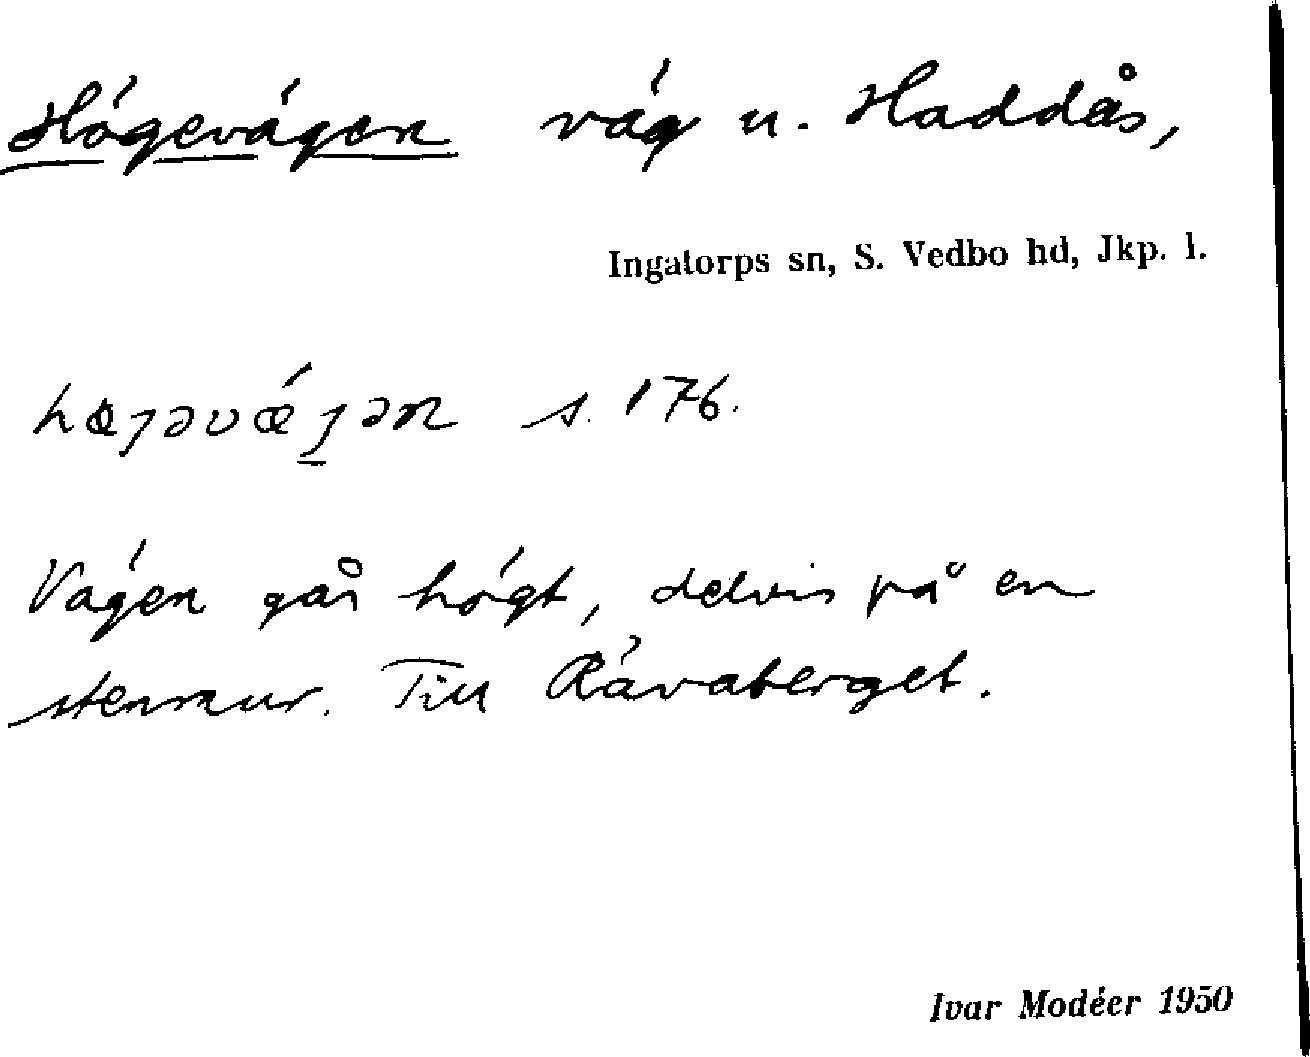 Högevägen väg u. Haddås,
Ingatorps sn, S. Vedbo hd, Jkp. l.
s. 176.
Vägen går högt, delvis på en
stenmur. Till Rävaberget.
Ivar Modéer 1950